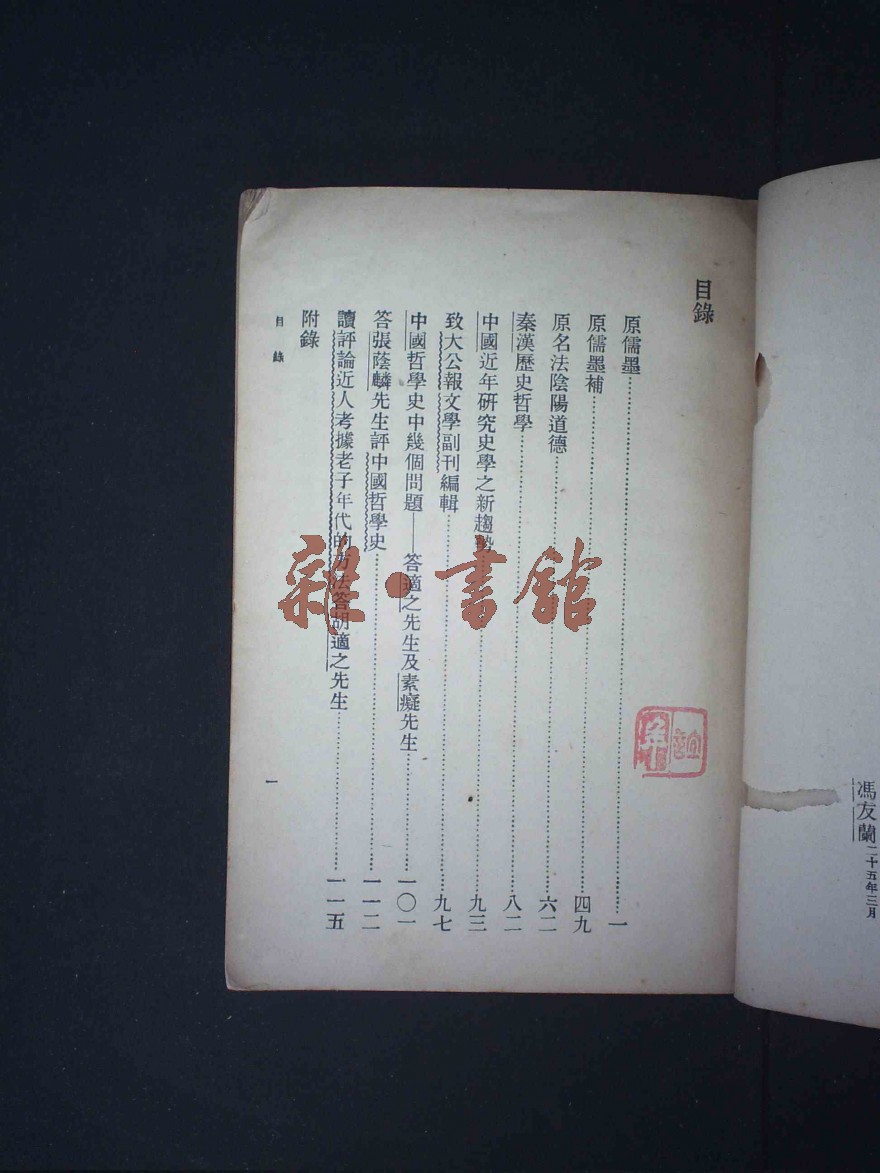 馮友蘭二十五年三月
目錄
原儒墨……一
原儒墨補……四九
原名法陰陽道德……六二
秦漢歷史哲學……八二
中國近年研究史學之新趨勢……九三
致大公報文學副刊編輯……九七
中國哲學史中幾個問題——答適之先生及素癡先生……一〇一
答張蔭麟先生評中國哲學史……一一二
讀評論近人考據老子年代的方法答胡適之先生……一一五
附錄
目錄
一
雜·書館